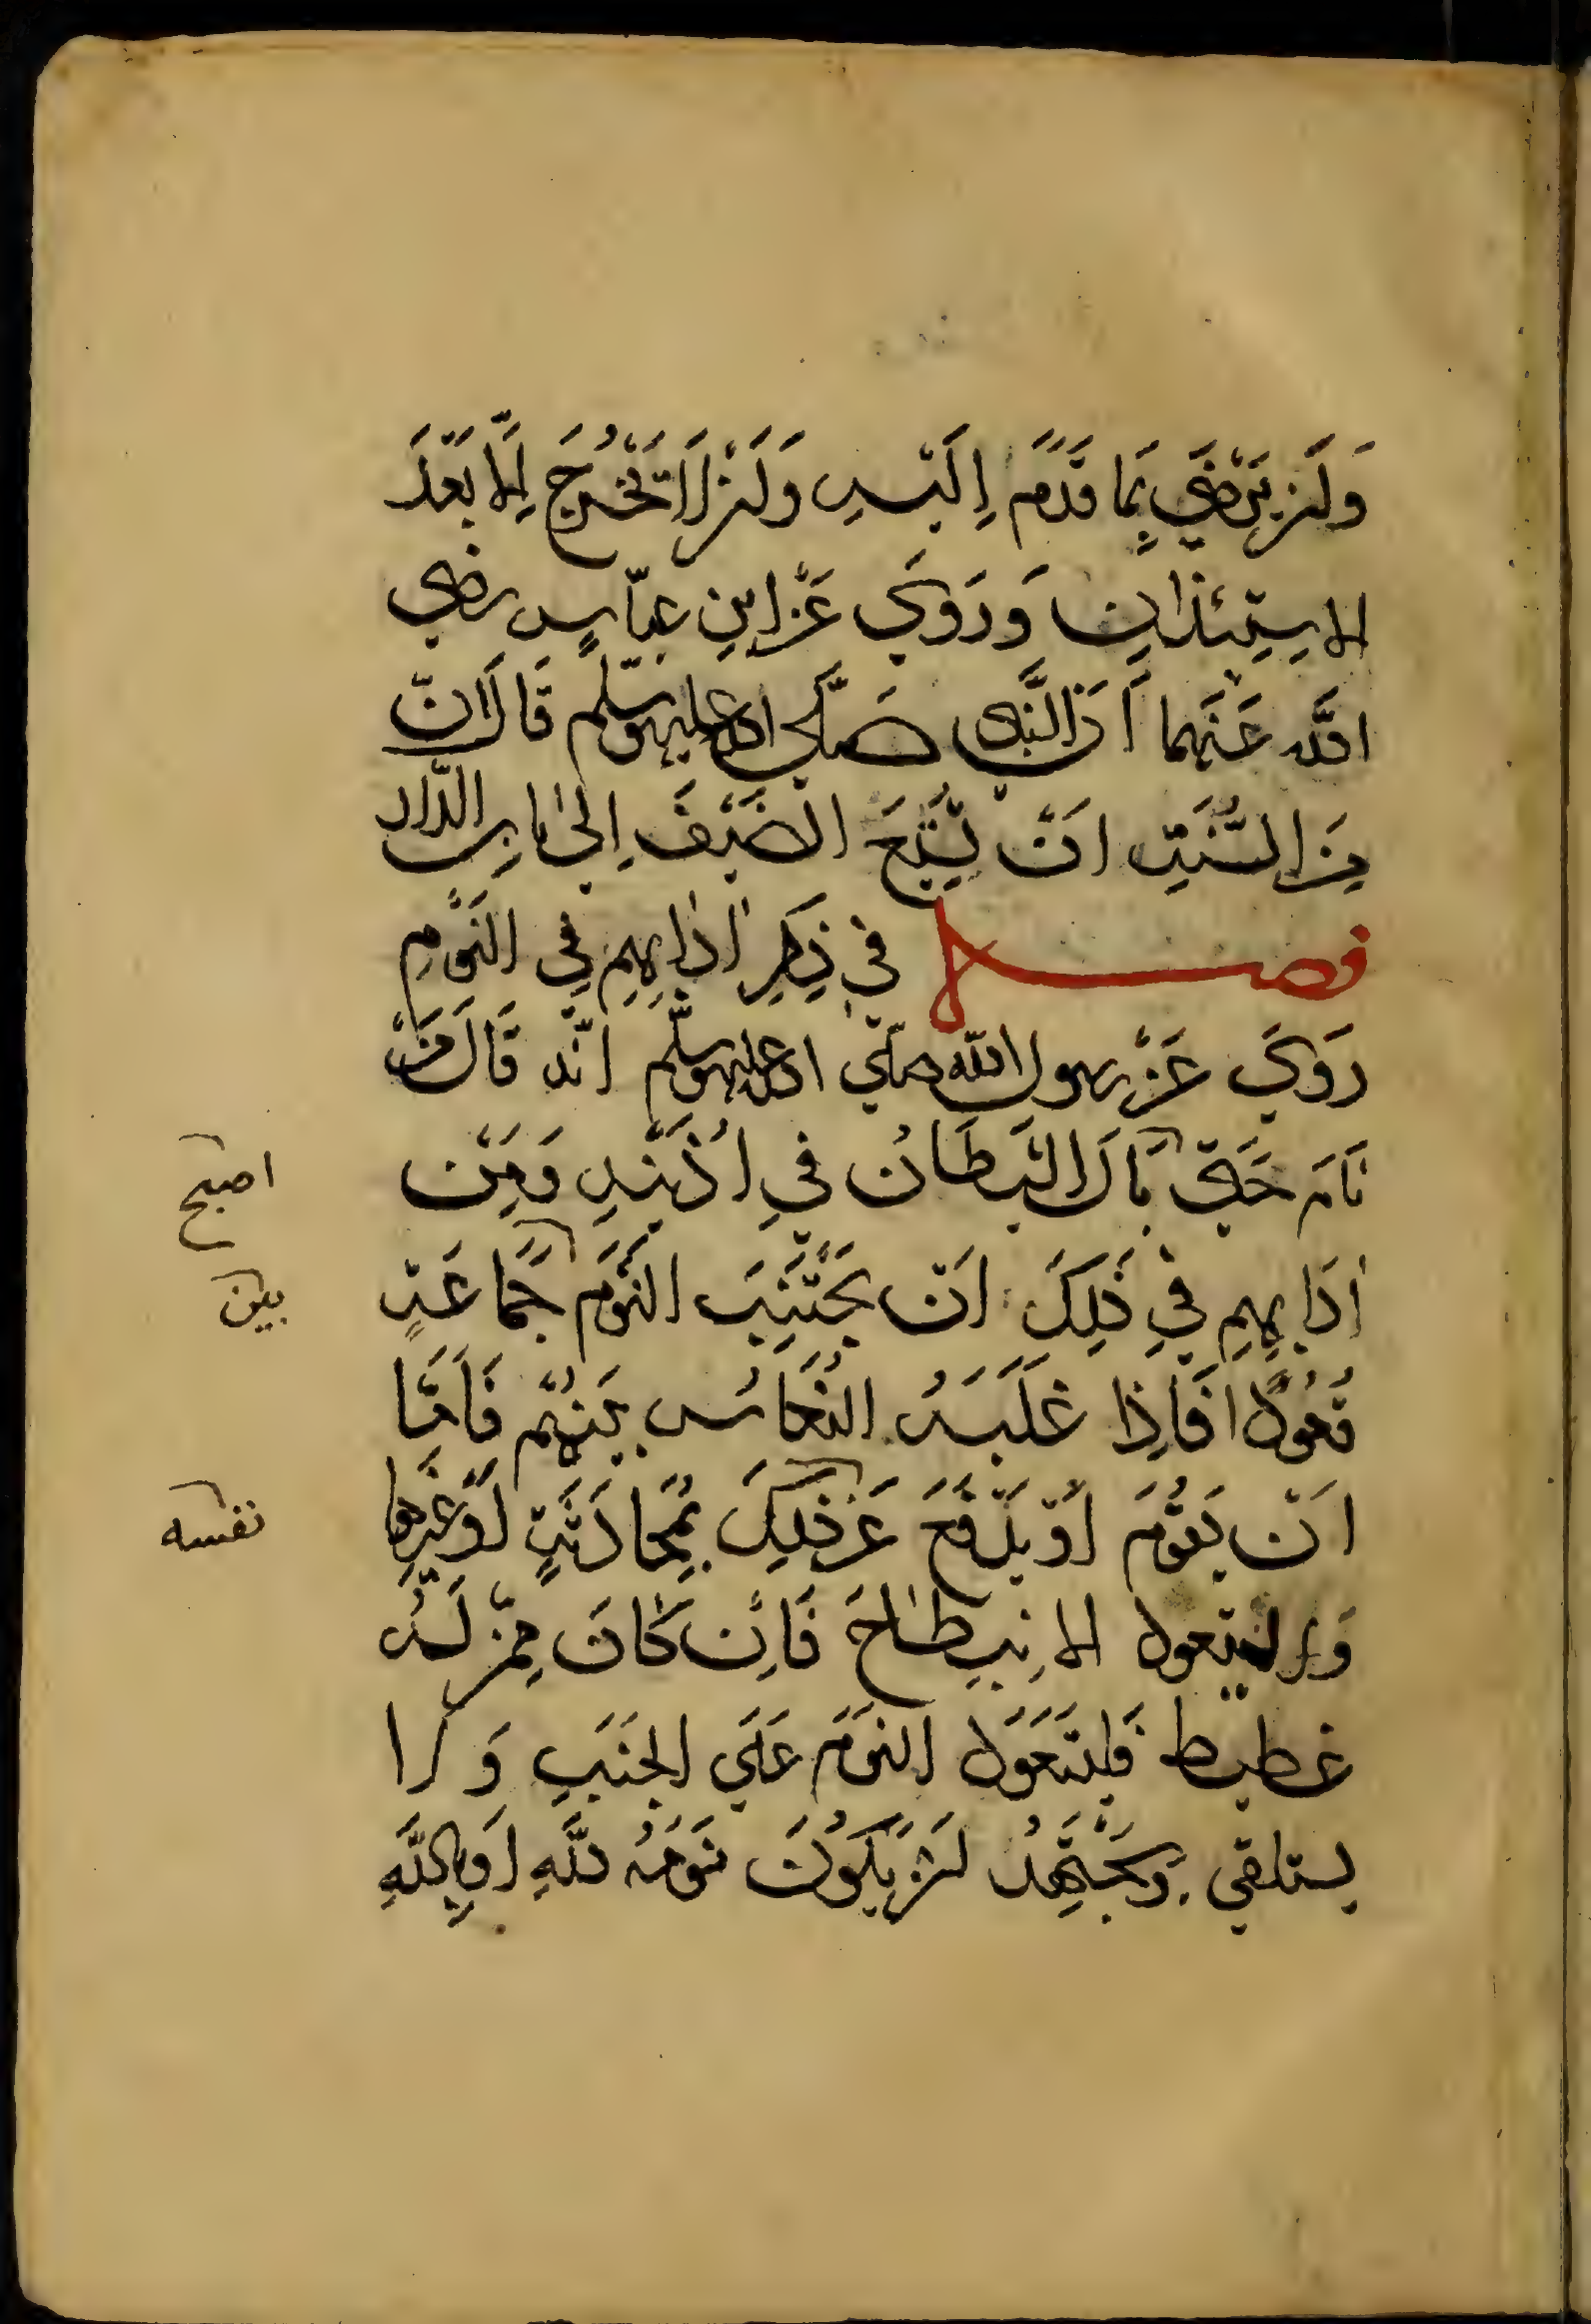 وَلَنْ يَرْضَي بِمَا قَدَّمَ اِلَيْهِ وَلَنْ لَا تَخْرُجَ اِلَّا بَعْدَ
الاِسْتِئذانِ وَرَوَي عَنْ ابنِ عبّاسٍ رضي
الله عَنْهما اَنَّ النَّبي صَلَّي الله عليه وسلّم قَالَ اِنّ
مِنَ السُّنَّةِ اَنْ يُتْبَعَ الضَيْفَ اِلي بابِ الدّار
فصل في ذِكرِ اٰدَابِهِم في النَوْمِ
رَوَي عَنْ رسول الله صلي الله عليه وسلّم انّه قَالَ مَنْ
نَامَ حَتّي بَالَ الشَيطَانُ في اُذُنَيْهِ وَمِنْ
اٰدَابِهِم فِي ذَلِكَ اَنْ يَجْتَنِبَ النَوْمَ جَمَاعَةٍ
قُعُوْدًا فَاِذا غَلَبَهُ النُعَاسُ بَيْنَهُم فَاَمَّا
اَنْ يَقُوْمَ اَوْ يَدْفَعَ عَنْ ذلِكَ بِمُحَادَثَةٍ اَوْ غَيْرِها
وَلا يتعول الاِنبِطَاحَ فَاِنْ كَانَ مِمَّنْ لَهُ
غطيط فَليتَعَوَّل النَوْمَ عَلَي الجَنَبِ وَلا
يستلقي وَيجْتَهِدُ اَنْ يَكُوْنَ نَوْمَهُ للَّهِ اَو بِاللَّهِ
اصبح
بين
نفسه